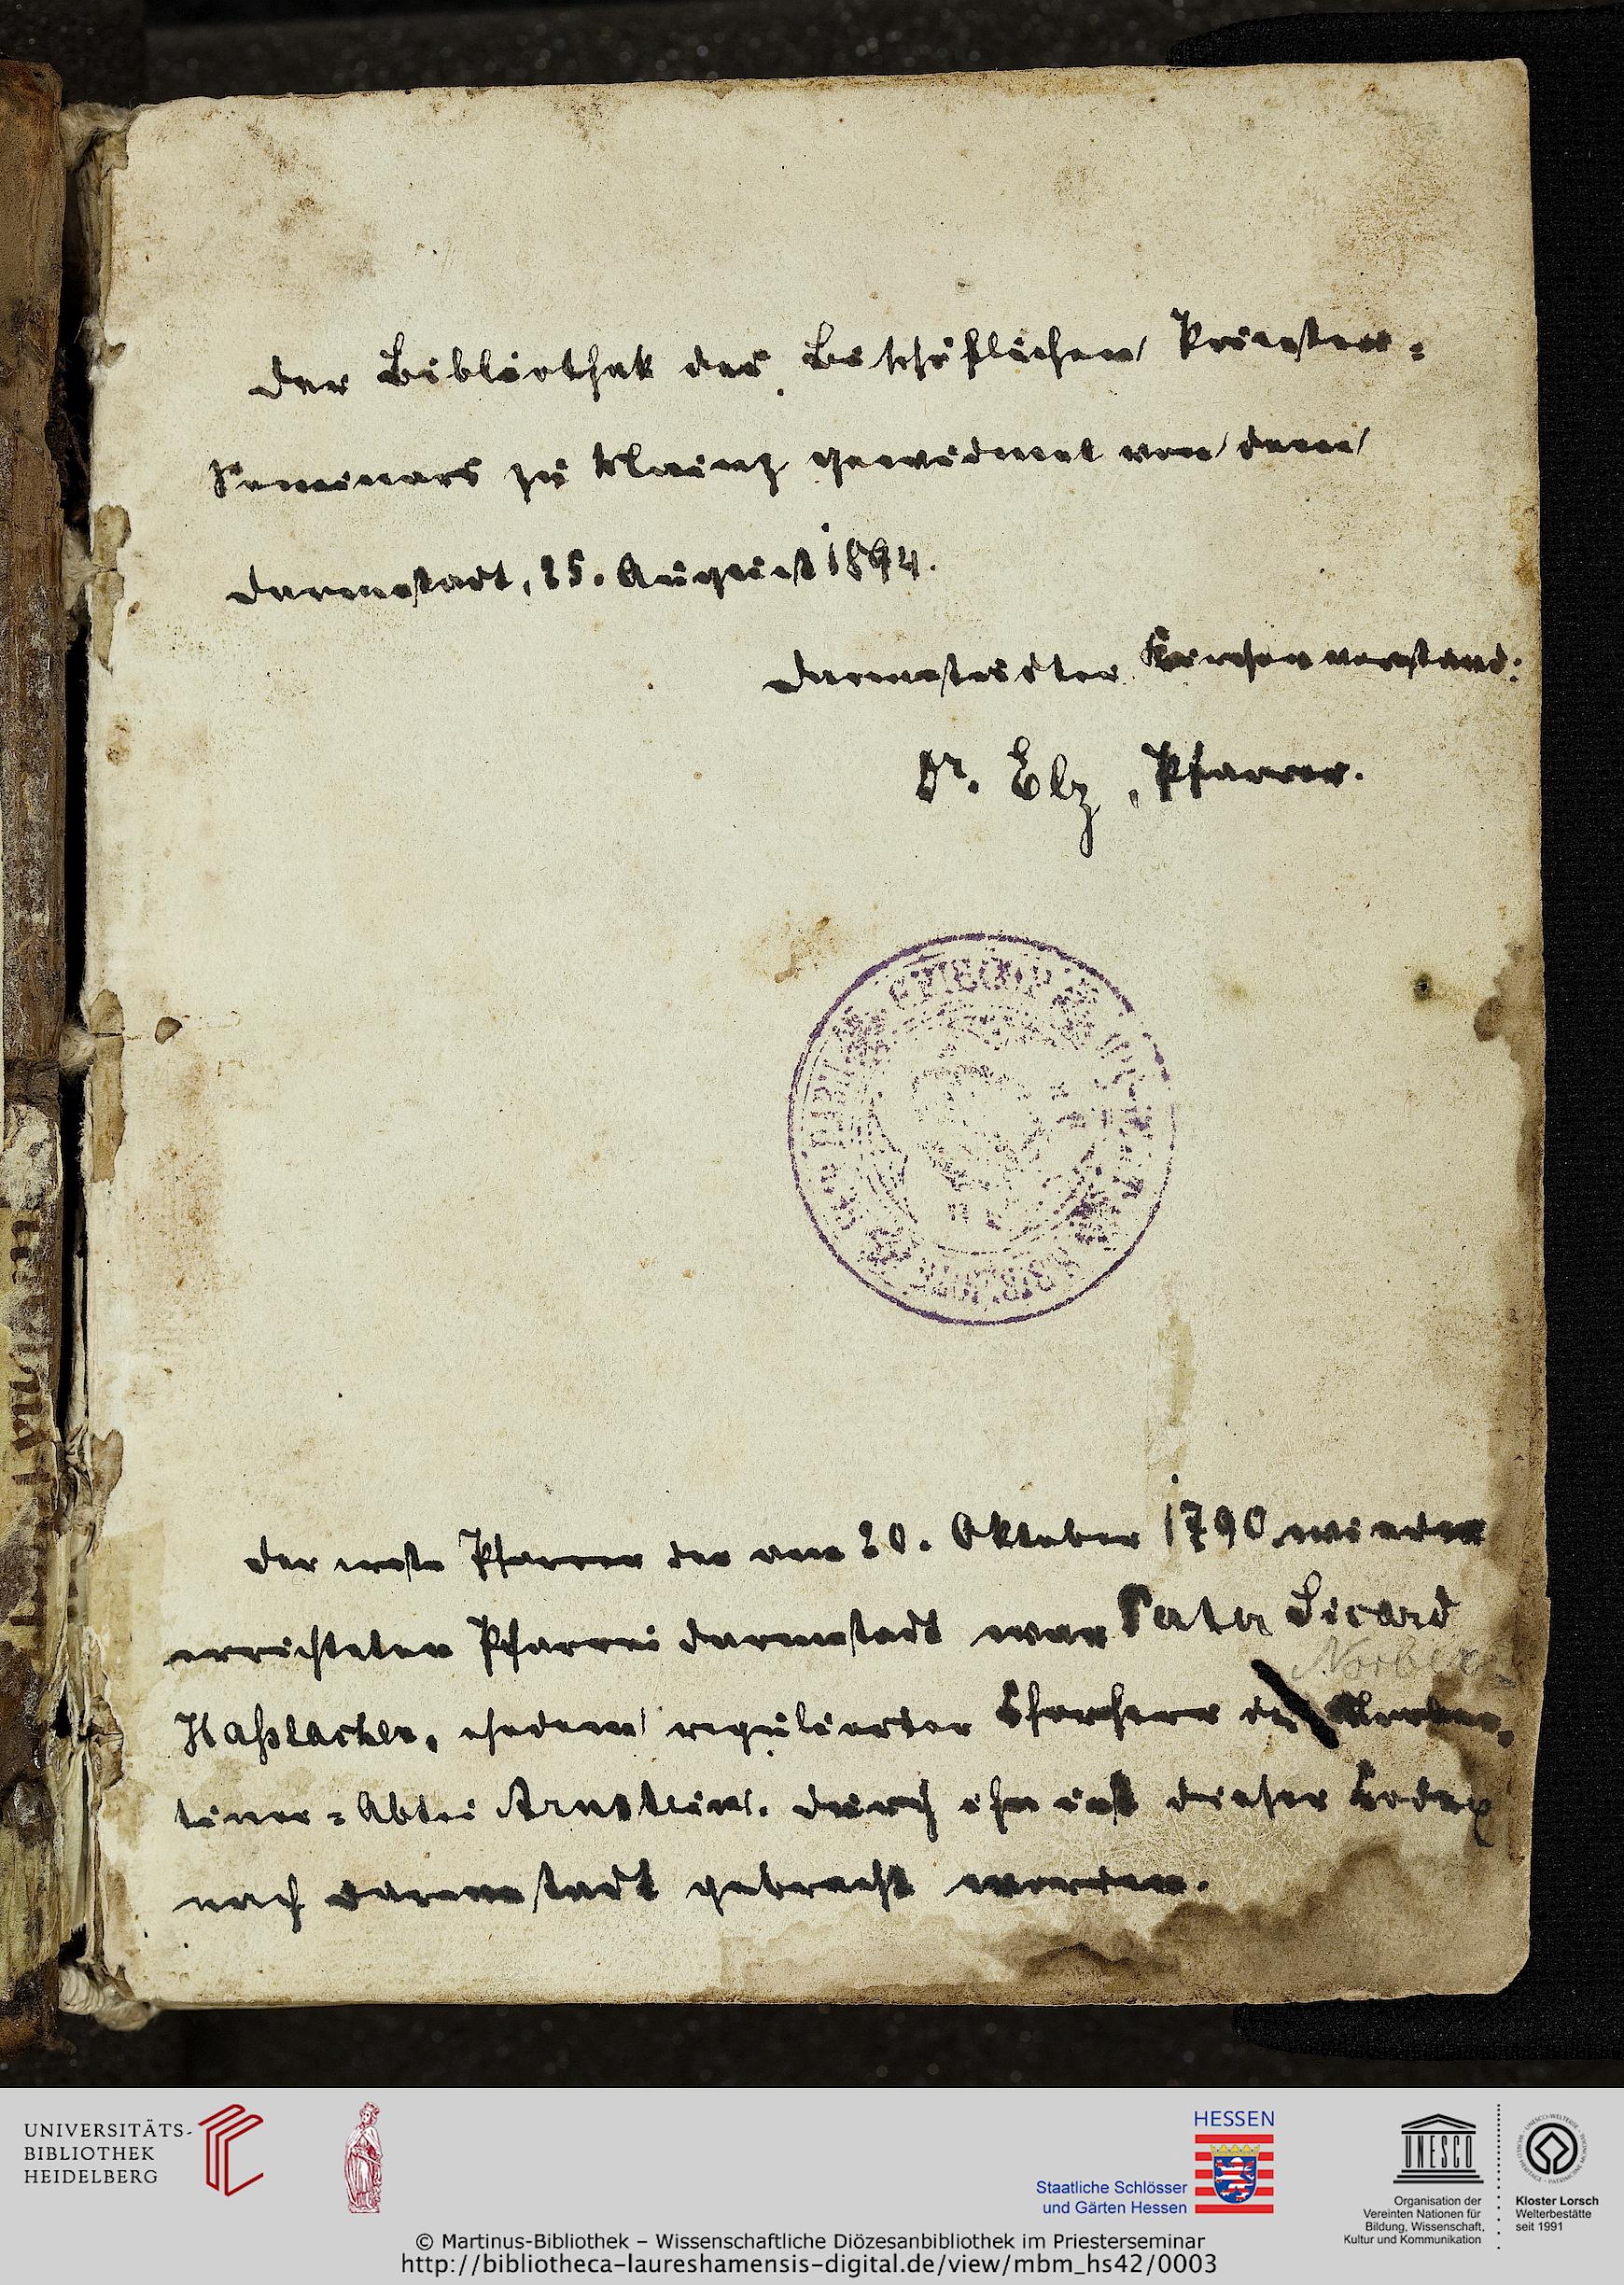 Der Bibliothek des Bischöflichen Priester=
Seminars zu Mainz gewidmet von dem
Darmstadt, 25. August 1894.
Darmstädter Kirchenvorstand:
Dr. Elz, Pfarrer.
Der erste Pfarrer der am 20. Oktober 1790 wieder
errichteten Pfarrei Darmstadt war Pater Sicard
Norbert
Haßlacher, ehedem regulierter Chorherr der
tiner=Abtei Arnstein. Durch ihn ist dieser Codex
nach Darmstadt gebracht worden.
UNIVERSITÄTS-
BIBLIOTHEK
HEIDELBERG
HESSEN
Staatliche Schlösser
und Gärten Hessen
UNESCO
Organisation der
Vereinten Nationen für
Bildung, Wissenschaft,
Kultur und Kommunikation
Kloster Lorsch
Welterbestätte
seit 1991
© Martinus-Bibliothek – Wissenschaftliche Diözesanbibliothek im Priesterseminar
http://bibliotheca-laureshamensis-digital.de/view/mbm_hs42/0003